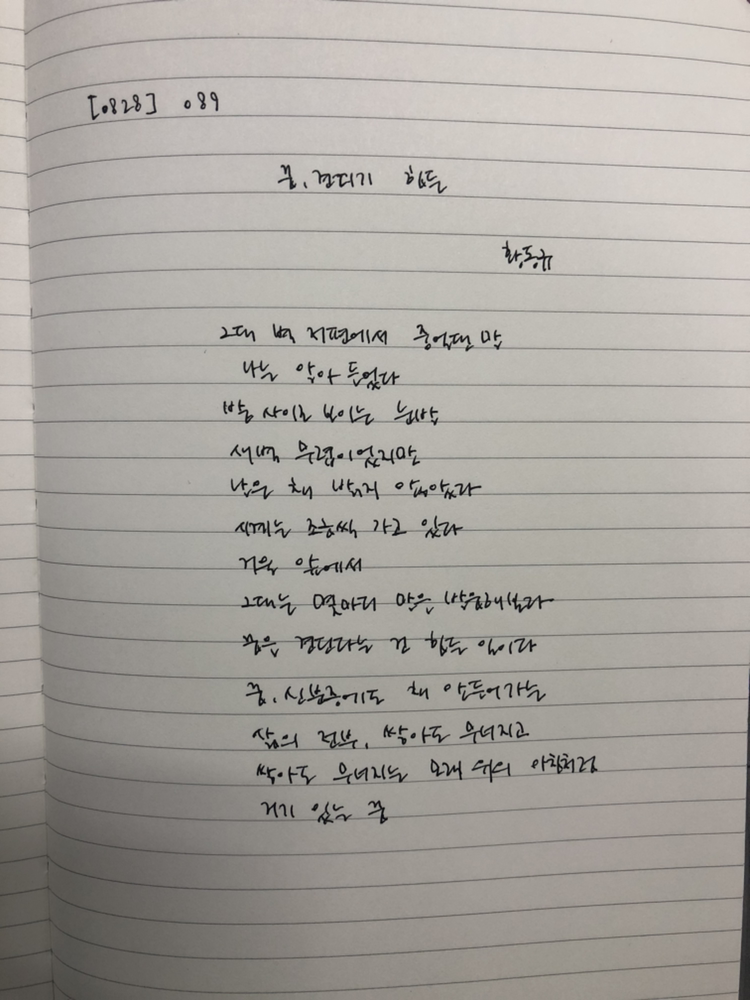 [0828] 089
꿈, 견디기 힘든
황동규
그대 벽 저편에서 중얼댄 말
나는 알아 들었다
발 사이로 보이는 눈발
새벽 무렵이었지만
날은 채 밝지 않았았다
시계는 조금씩 가고 있다
거울 앞에서
그대는 몇마디 말을 발음해본다
꿈을 견딘다는 건 힘든 일이다
꿈, 신분증에도 채 안들어가는
삶의 전부, 쌓아도 무너지고
쌓아도 무너지는 모래 위의 아침처럼
거기 있는 꿈